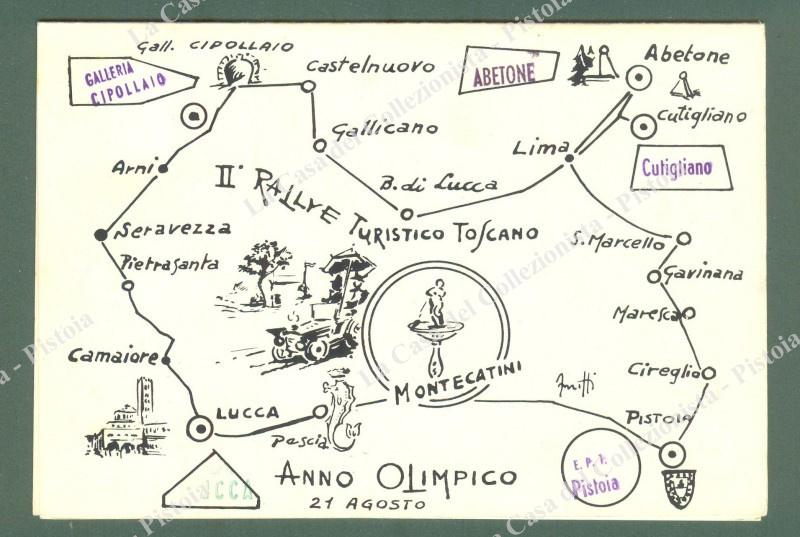 Gall. CIPOLLAIO
GALLERIA
CIPOLLAIO
Castelnuovo
ABETONE
Abetone
Cutigliano
Gallicano
Lima
Arni
Cutigliano
B. di Lucca
IIº RALLYE TURISTICO TOSCANO
Seravezza
S. Marcello
Pietrasanta
Gavinana
Maresca
Camaiore
Cireglio
MONTECATINI
LUCCA
PISTOIA
Pescia
E. P. T.
Pistoia
UCCA
ANNO OLIMPICO
21 AGOSTO
La Casa del Collezionista - Pistoia